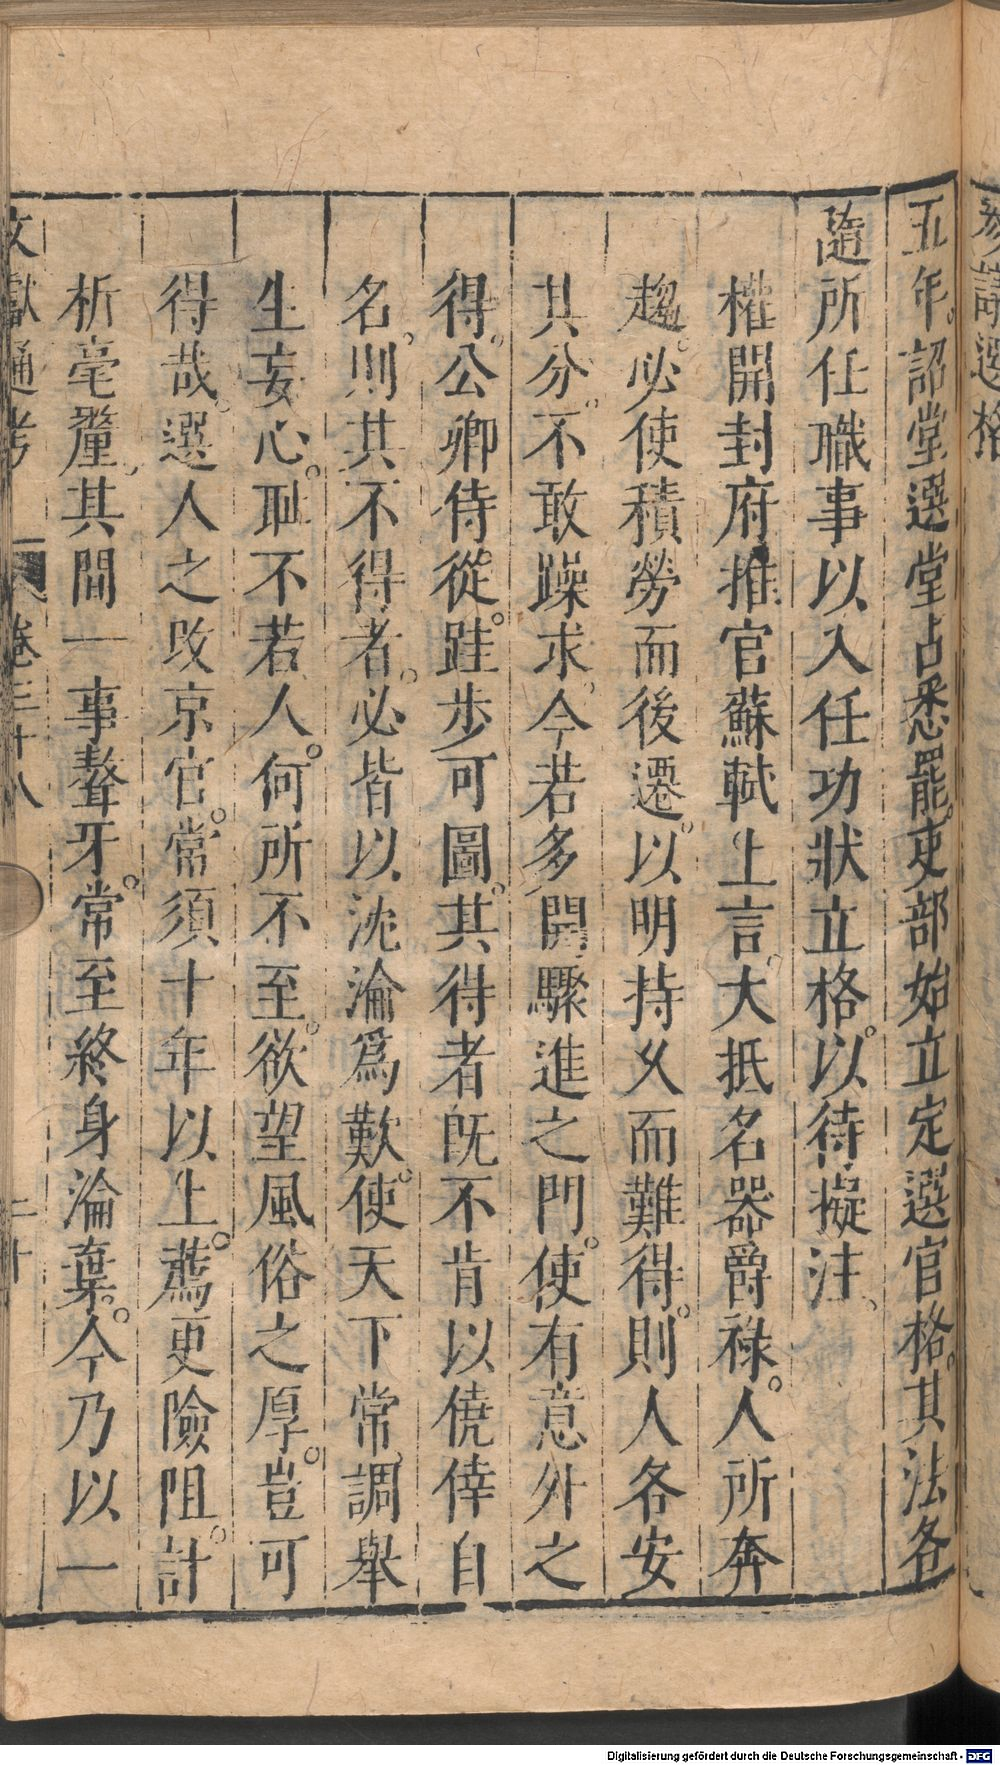 五年詔堂選堂占悉罷吏部始立定選官格其法各
隨所任職事以入任功狀立格以待擬注
權開封府推官蘇軾上言大抵名器爵祿人所奔
趨必使積勞而後遷以明持乆而難得則人各安
其分不敢躁求今若多開驟進之門使有意外之
得公卿侍從跬步可圖其得者旣不肯以僥倖自
名則其不得者必皆以沈淪爲歎使天下常調舉
生妄心耻不若人何所不至欲望風俗之厚豈可
得哉選人之改京官常須十年以上薦更險阻計
析毫釐其間一事聱牙常至終身淪棄今乃以一
文獻通考 卷三十八 二十
Digitalisierung gefördert durch die Deutsche Forschungsgemeinschaft - DFG